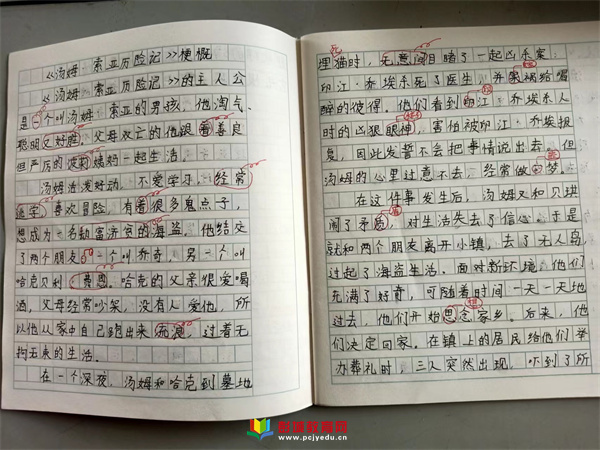 《汤姆·索亚历险记》梗概
《汤姆·索亚历险记》的主人公
是一个叫汤姆·索亚的男孩，他淘气、
聪明又好胜，父母双亡的他跟着善良
但严厉的波莉姨妈一起生活。
汤姆活泼好动，不爱学习，经常
逃学，喜欢冒险，有着很多鬼点子，
想成为一名劫富济贫的海盗，他结交
了两个朋友，一个叫乔奇，另一个叫
哈克贝利·费恩，哈克的父亲很爱喝
酒，父母经常吵架，没有人爱他，所
以他从家中自己跑出来流浪，过着无
拘无束的生活。
在一个深夜，汤姆和哈克到墓地
埋猫时，无意间目睹了一起凶杀案：
印江·乔埃杀死了医生，并嫁祸给喝
醉的彼得。他们看到印江·乔埃杀人
时的凶狠眼神，害怕被印江·乔埃报
复，因此发誓不会把事情说出去。但
汤姆的心里过意不去，经常做梦。
在这件事发生后，汤姆又和贝琪
闹了矛盾，对生活失去了信心，于是
就和两个朋友离开小镇，去了无人岛，
过起了海盗生活。面对新环境，他们
充满了好奇，可随着时间一天一天地
过去，他们开始思念家乡。后来，他
们决定回家。在镇上的居民给他们举
办葬礼时，三人突然出现，吓到了所
www.pcjyedu.cn